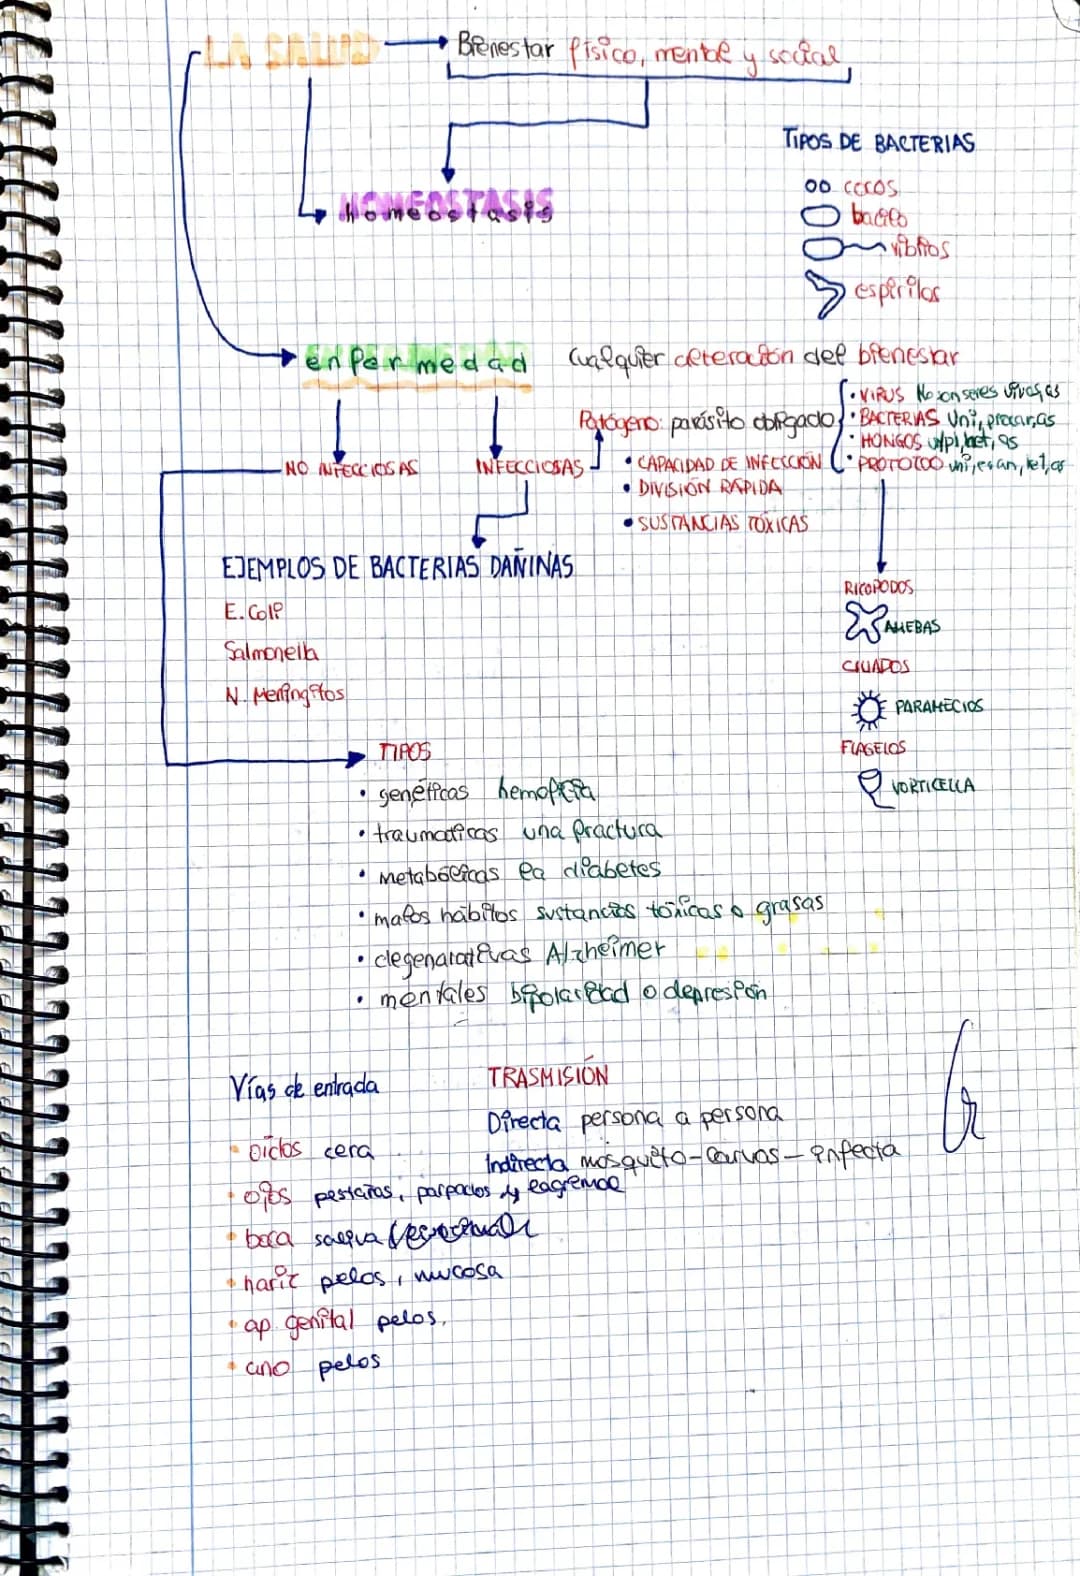 LA SALUD → Bienestar físico, mental y social
TIPOS DE BACTERIAS
cocos
HOMEOSTASIS
homeostasis
bacilo
vibrios
espirilos
enfermedad Cualquier deteración del bienestar
• VIRUS No son seres vivos, as
Patógeno: parásito obligado • BACTERIAS Uni, procar, as
• HONGOS u/pl, het, as
NO INFECCIOSAS INFECCIOSAS • CAPACIDAD DE INFECCIÓN • PROTOZOO uni, eucan, het, as
• DIVISIÓN RÁPIDA
• SUSTANCIAS TÓXICAS
EJEMPLOS DE BACTERIAS DAÑINAS
RICOPODOS
E. Coli
AMEBAS
Salmonella
CILIADOS
N. Meningitos
PARAMECIOS
TIPOS
FLAGELOS
• genéticas hemofilia
VORTICELLA
• traumaticas una fractura
• metabólicas la diabetes
• malos hábitos sustancias tóxicas o grasas
• degenarativas Alzheimer
• mentales bipolaridad o depresión
Vías de entrada
TRASMISIÓN
Directa persona a persona
• oídos cera
Indirecta mosquito - larvas - infecta
• ojos pestañas, parpados y lagrimal
• boca saliva
• nariz pelos, mucosa
• ap. genital pelos,
• ano pelos